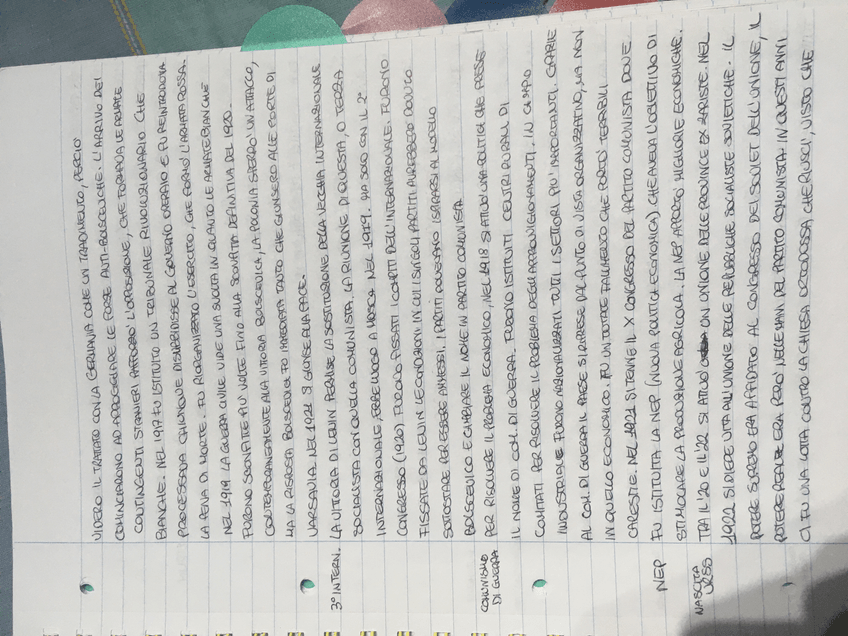 VIDERO IL TRATTATO CON LA GERMANIA COME UN TRADIMENTO, PERCIÒ
COMINCIARONO AD APPOGGIARE LE FORZE ANTI-BOLSCEVICHE. L'ARRIVO DEI
CONTINGENTI STRANIERI RAFFORZÒ L'OPPOSIZIONE, CHE FORMAVA LE ARMATE
BIANCHE. NEL 1917 FU ISTITUITO UN TRIBUNALE RIVOLUZIONARIO CHE
PROCESSAVA CHIUNQUE DISUBBIDISSE AL GOVERNO OPERAIO E FU REINTRODOTTA
LA PENA DI MORTE. FU RIORGANIZZATO L'ESERCITO, CHE FORMÒ L'ARMATA ROSSA.
NEL 1919 LA GUERRA CIVILE VIDE UNA SVOLTA IN QUANTO LE ARMATE BIANCHE
FURONO SCONFITTE PIÙ VOLTE FINO ALLA SCONFITTA DEFINITIVA DEL 1920.
CONTEMPORANEAMENTE ALLA VITTORIA BOLSCEVICA, LA POLONIA SFERRÒ UN ATTACCO,
MA LA RISPOSTA BOLSCEVICA FU IMMEDIATA TANTO CHE GIUNSERO ALLE PORTE DI
VARSAVIA. NEL 1921 SI GIUNSE ALLA PACE.
3° INTERN. LA VITTORIA DI LENIN PERMISE LA SOSTITUZIONE DELLA VECCHIA INTERNAZIONALE
SOCIALISTA CON QUELLA COMUNISTA. LA RIUNIONE DI QUESTA, O TERZA
INTERNAZIONALE, EBBE LUOGO A MOSCA NEL 1919. MA SOLO CON IL 2°
CONGRESSO (1920) FURONO FISSATI I COMPITI DELL'INTERNAZIONALE. FURONO
FISSATE DA LENIN LE CONDIZIONI IN CUI I SINGOLI PARTITI AVREBBERO DOVUTO
SOTTOSTARE PER ESSERE AMMESSI. I PARTITI DOVEVANO ISPIRARSI AL MODELLO
BOLSCEVICO E CAMBIARE IL NOME IN PARTITO COMUNISTA
COMUNISMO DI GUERRA PER RISOLVERE IL PROBLEMA ECONOMICO, NEL 1918 SI ATTUÒ UNA POLITICA CHE PRESE
IL NOME DI COM. DI GUERRA. FURONO ISTITUITI CENTRI RURALI DI
COMITATI PER RISOLVERE IL PROBLEMA DEGLI APPROVVIGIONAMENTI. IN CAMPO
INDUSTRIALE FURONO NAZIONALIZZATI TUTTI I SETTORI PIÙ IMPORTANTI. GRAZIE
AL COM. DI GUERRA IL PAESE SI RIPRESE DAL PUNTO DI VISTA ORGANIZZATIVO, MA NON
IN QUELLO ECONOMICO. FU UN TOTALE FALLIMENTO CHE PORTÒ TERRIBILI
CARESTIE. NEL 1921 SI TENNE IL X CONGRESSO DEL PARTITO COMUNISTA DOVE
NEP FU ISTITUITA LA NEP (NUOVA POLITICA ECONOMICA) CHE AVEVA L'OBIETTIVO DI
STIMOLARE LA PRODUZIONE AGRICOLA. LA NEP APPORTÒ MIGLIORIE ECONOMICHE.
NASCITA URSS TRA IL '20 E IL '22 SI ATTUÒ UN UNIONE DELLE PROVINCE EX ZARISTE. NEL
1922 SI DIEDE VITA ALL'UNIONE DELLE REPUBBLICHE SOCIALISTE SOVIETICHE. IL
POTERE SUPREMO ERA AFFIDATO AL CONGRESSO DEI SOVIET DELL'UNIONE, IL
POTERE REALE ERA PERÒ NELLE MANI DEL PARTITO COMUNISTA. IN QUESTI ANNI
CI FU UNA LOTTA CONTRO LA CHIESA ORTODOSSA, CHE RIUSCÌ, VISTO CHE